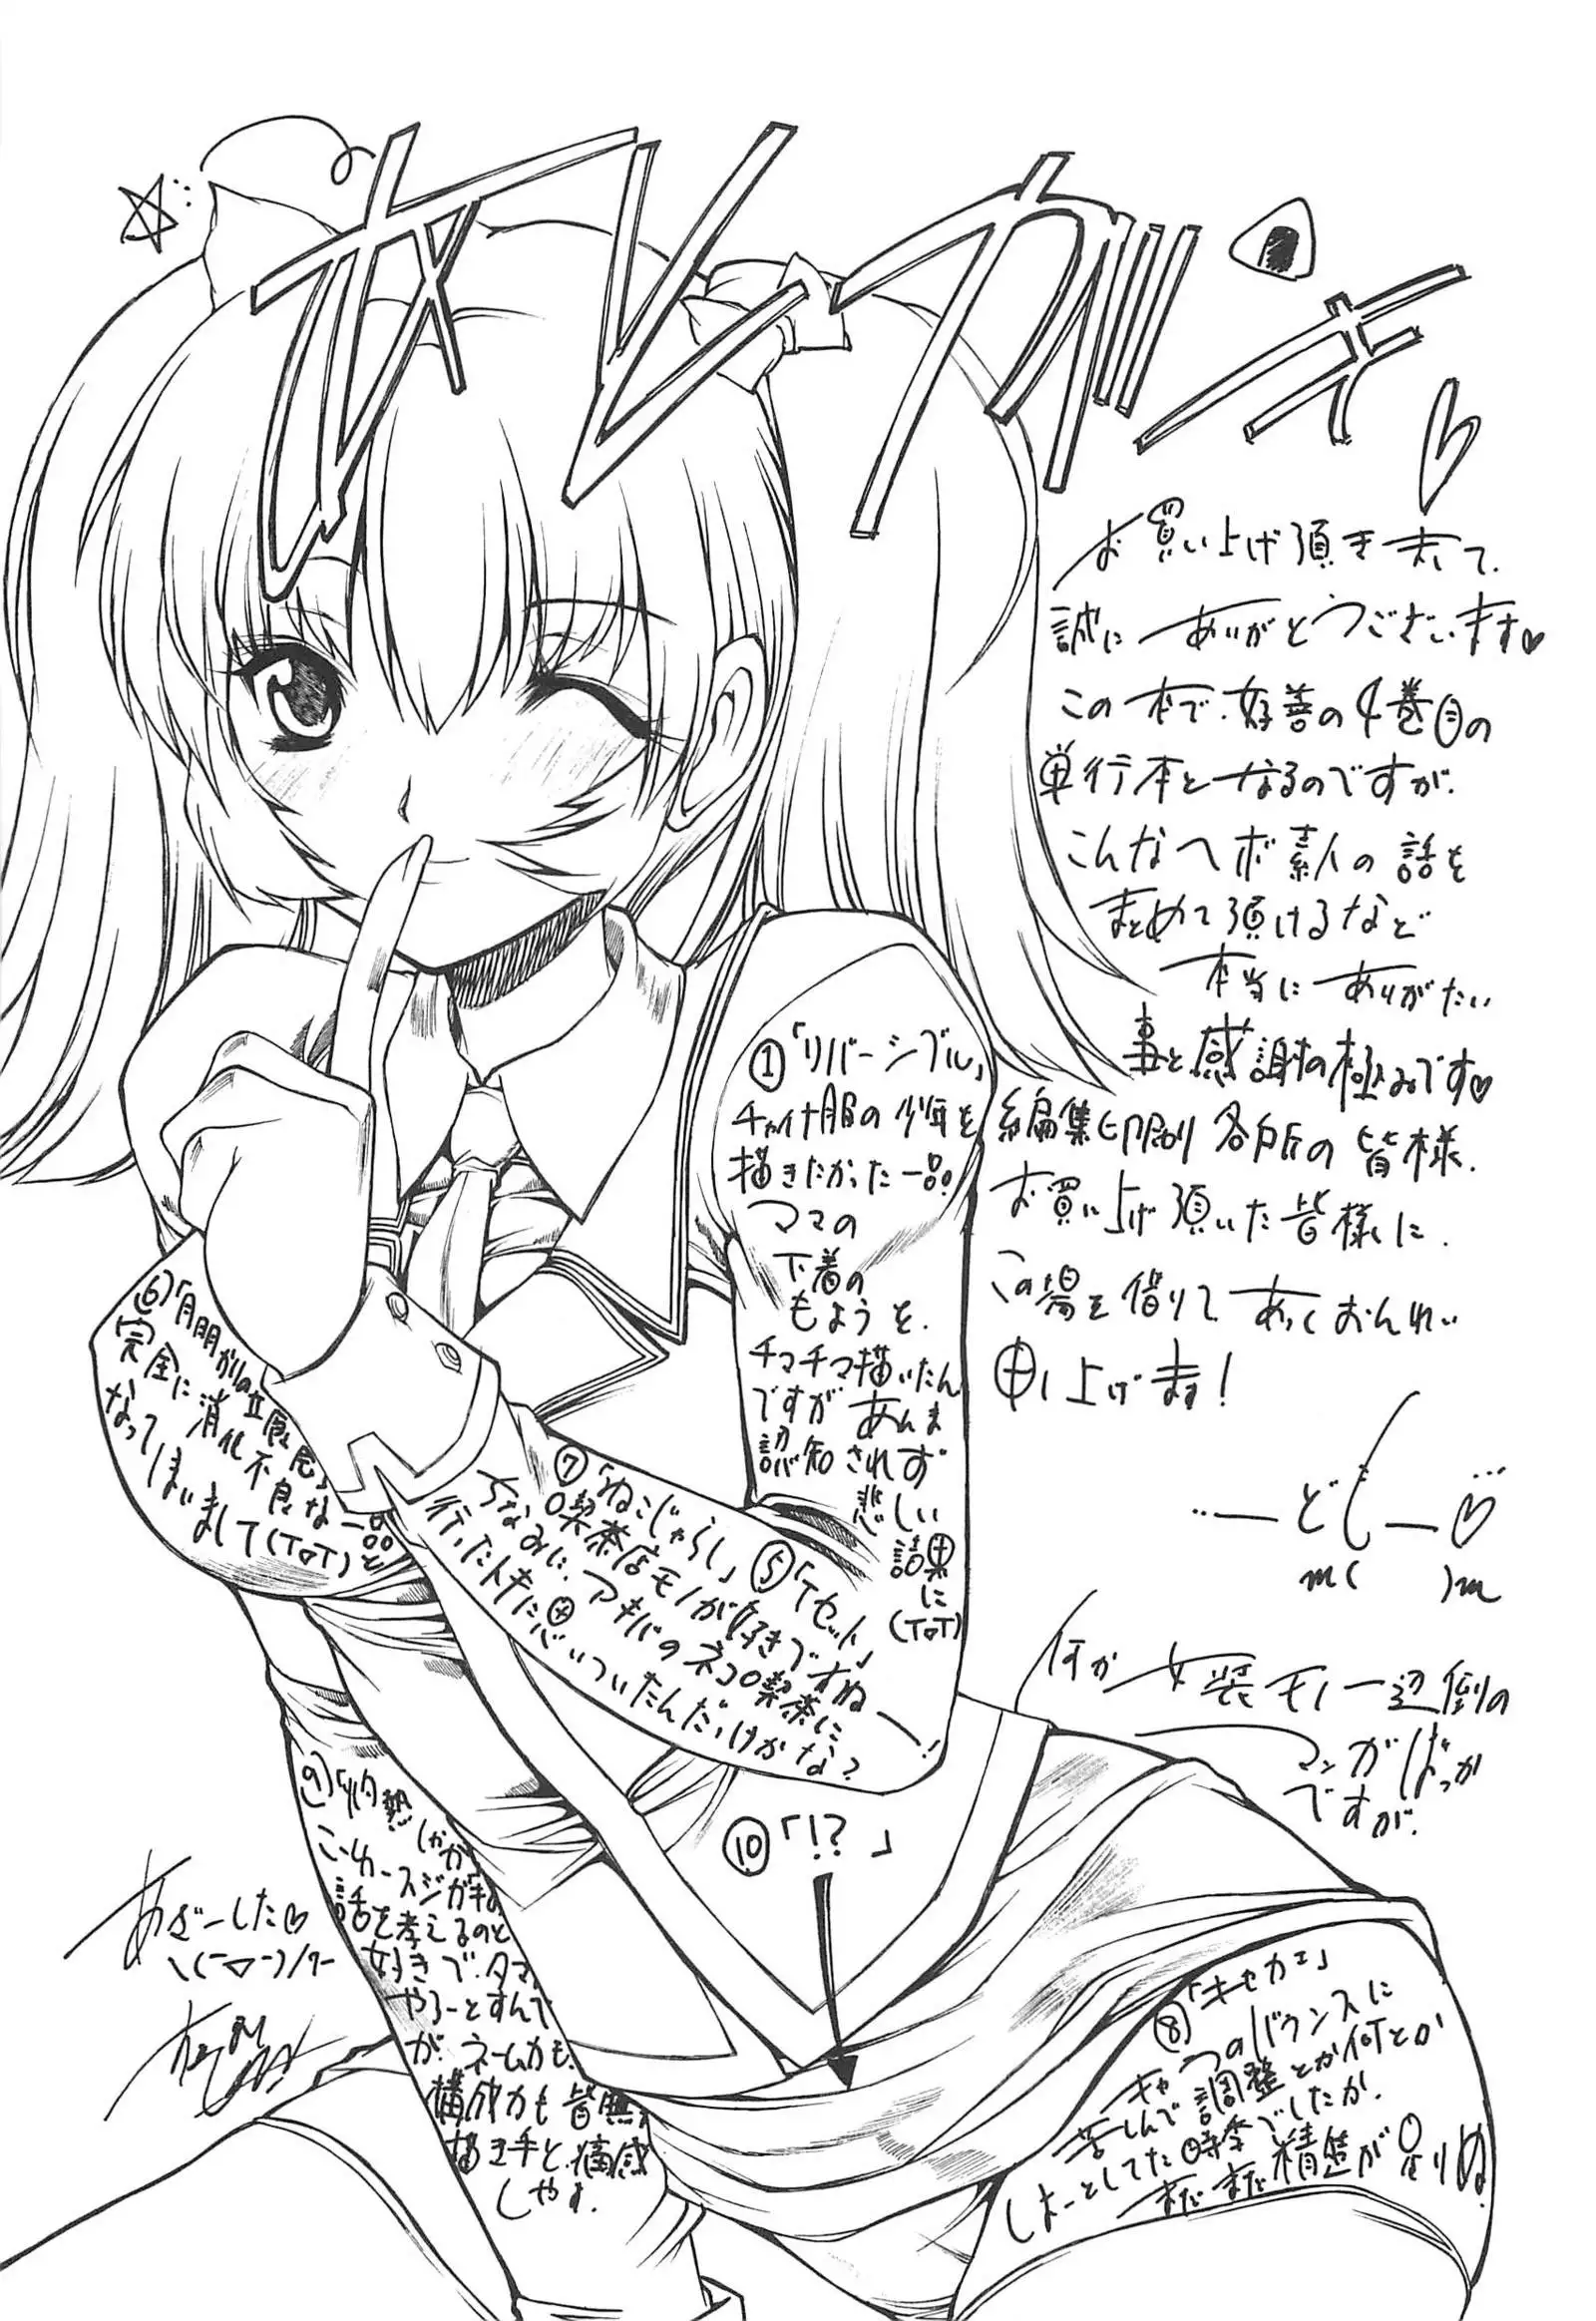 オレガキ
お買い上げ頂きまして、
誠にありがとうございます♥
この本で、好善の4巻目の
単行本となるのですが、
こんなヘボ素人の話を
まとめて頂けるなど
本当にありがたい
事と感謝の極みです♥
編集印刷 各戸所の皆様、
お買い上げ頂いた皆様に、
この場を借りて あつくおんれい
申し上げます!
…―どしー♡…
m( )m
何か女装モノ一辺倒の
マンガばっか
ですが、
①「リバーシブル」
チャイナ服の少年を
描きたかった一品!
ママの
下着の
もようを、
チマチマ描いたん
ですが あんま
認知されず
悲しい
結果
に
(ToT)
⑤「Tセット」
⑥「月明かりの
完全に消化不良な一品と
なってしまいまして(ToT)
⑦「ねこじゃらし」
喫茶店モノが好きですねー!
ちなみに、アキバのネコ喫茶に
行った時に思いついたんだっけかな?
⑧「キセカエ」
キャラのバウンスに
苦しんで調整とか何とか
しよーとしてた時季でしたか、
まだまだ精進が足りぬ!
⑨「灼熱
こーゆースジがきの
話を考えるのと
好きで、タマ
やろーとすんで
が、ネーム力も、
構成力も皆無
描き手と、痛感
しやす。
⑩「!?」
あざーした♡
\(￣▽￣)/ｱｰ